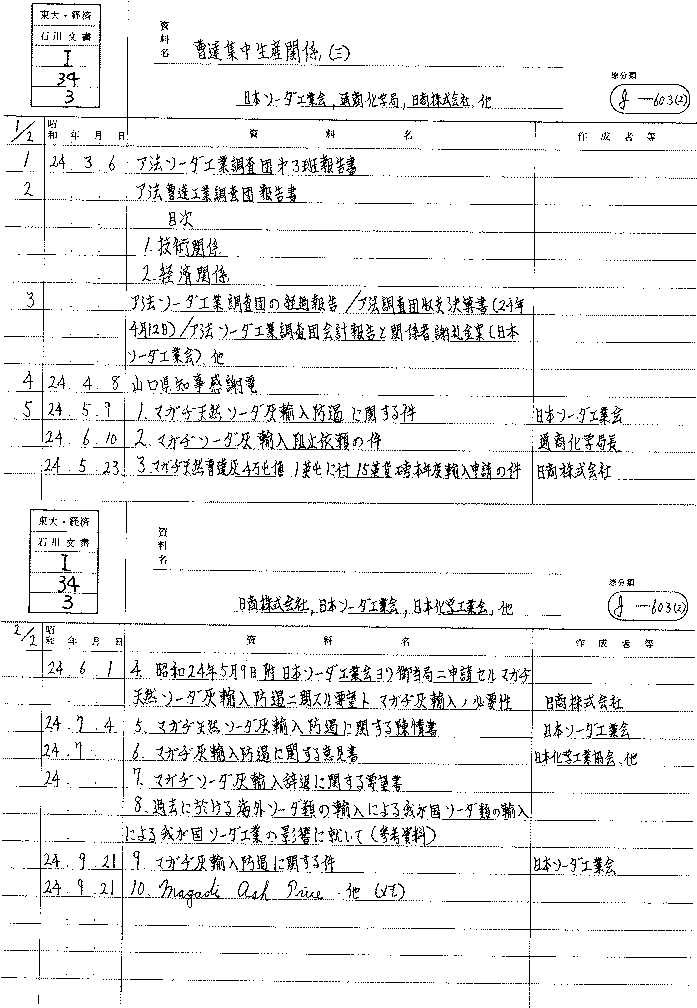 東大・経済
石川文書
I
34
3
資料名
曹達集中生産関係(三)
日本ソーダ工業会, 通商化学局, 日商株式会社, 他
原分類
J-603(2)
1/2
昭和 年 月 日
資 料 名
作 成 者 等
1 24. 3. 6 ア法ソーダ工業調査団オ3班報告書
2 ア法曹達工業調査団報告書
目次
1.技術関係
2.経済関係
3 ア法ソーダ工業調査団の経過報告/ア法調査団収支決算書(24年
4月12日)/ア法ソーダ工業調査団会計報告と関係者謝礼金業(日本
ソーダ工業会)他
4 24. 4. 8 山口県知事感謝電
5 24. 5. 9 1.マガヂ天然ソーダ灰輸入防遏に関する件 日本ソーダ工業会
24. 6. 10 2.マガヂソーダ灰輸入阻止依頼の件 通商化学局長
24. 5. 23 3.マガヂ天然曹達灰4万屯 1英屯に付15英 本年度輸入申請の件 日商株式会社
東大・経済
石川文書
I
34
3
資料名
日商株式会社, 日本ソーダ工業会, 日本化学工業会, 他
原分類
J-603(2)
2/2
昭和 年 月 日
資 料 名
作 成 者 等
24. 6. 1 4. 昭和24年5月9日附日本ソーダ工業会ヨリ御当局ニ申請セルマガヂ
天然ソーダ灰輸入防遏ニ関スル要望ト マガヂ灰輸入ノ必要性 日商株式会社
24. 7. 4 5. マガヂ天然ソーダ灰輸入防遏に関する陳情書 日本ソーダ工業会
24. 7. 6. マガヂ灰輸入防遏に関する意見書 日本化学工業協会、他
24. 7. マガヂソーダ灰輸入辞退に関する要望書
8. 過去に於ける海外ソーダ類の輸入による我が国ソーダ類の輸入
による我が国ソーダ工業の影響に就いて(参考資料)
24. 9. 21 9 マガヂ灰輸入防遏に関する件 日本ソーダ工業会
24. 9. 21 10. Magadi Ash Price. 他 (メモ)